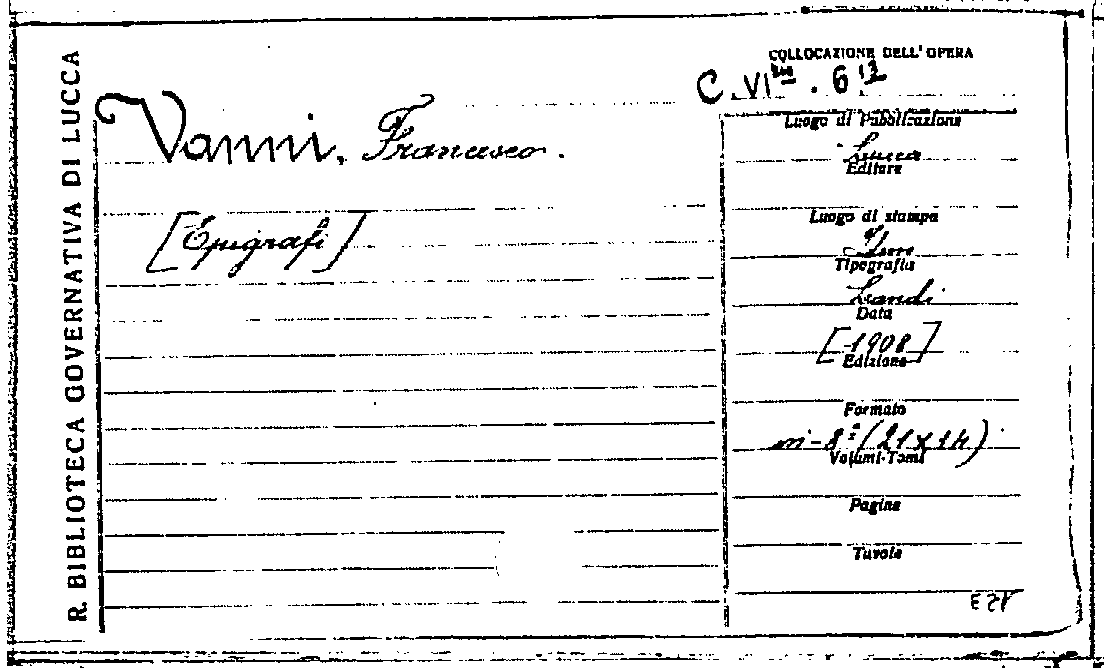 R. BIBLIOTECA GOVERNATIVA DI LUCCA
Vanni, Francesco.
[Epigrafi]
COLLOCAZIONE DELL'OPERA
C. VI . 6
Luogo di Pubblicazione
Lucca
Editore
Luogo di stampa
Tipografia
Landi
Data
[1908]
Edizione
Formato
in-8º (21x14)
Volumi-Tomi
Pagine
Tavole